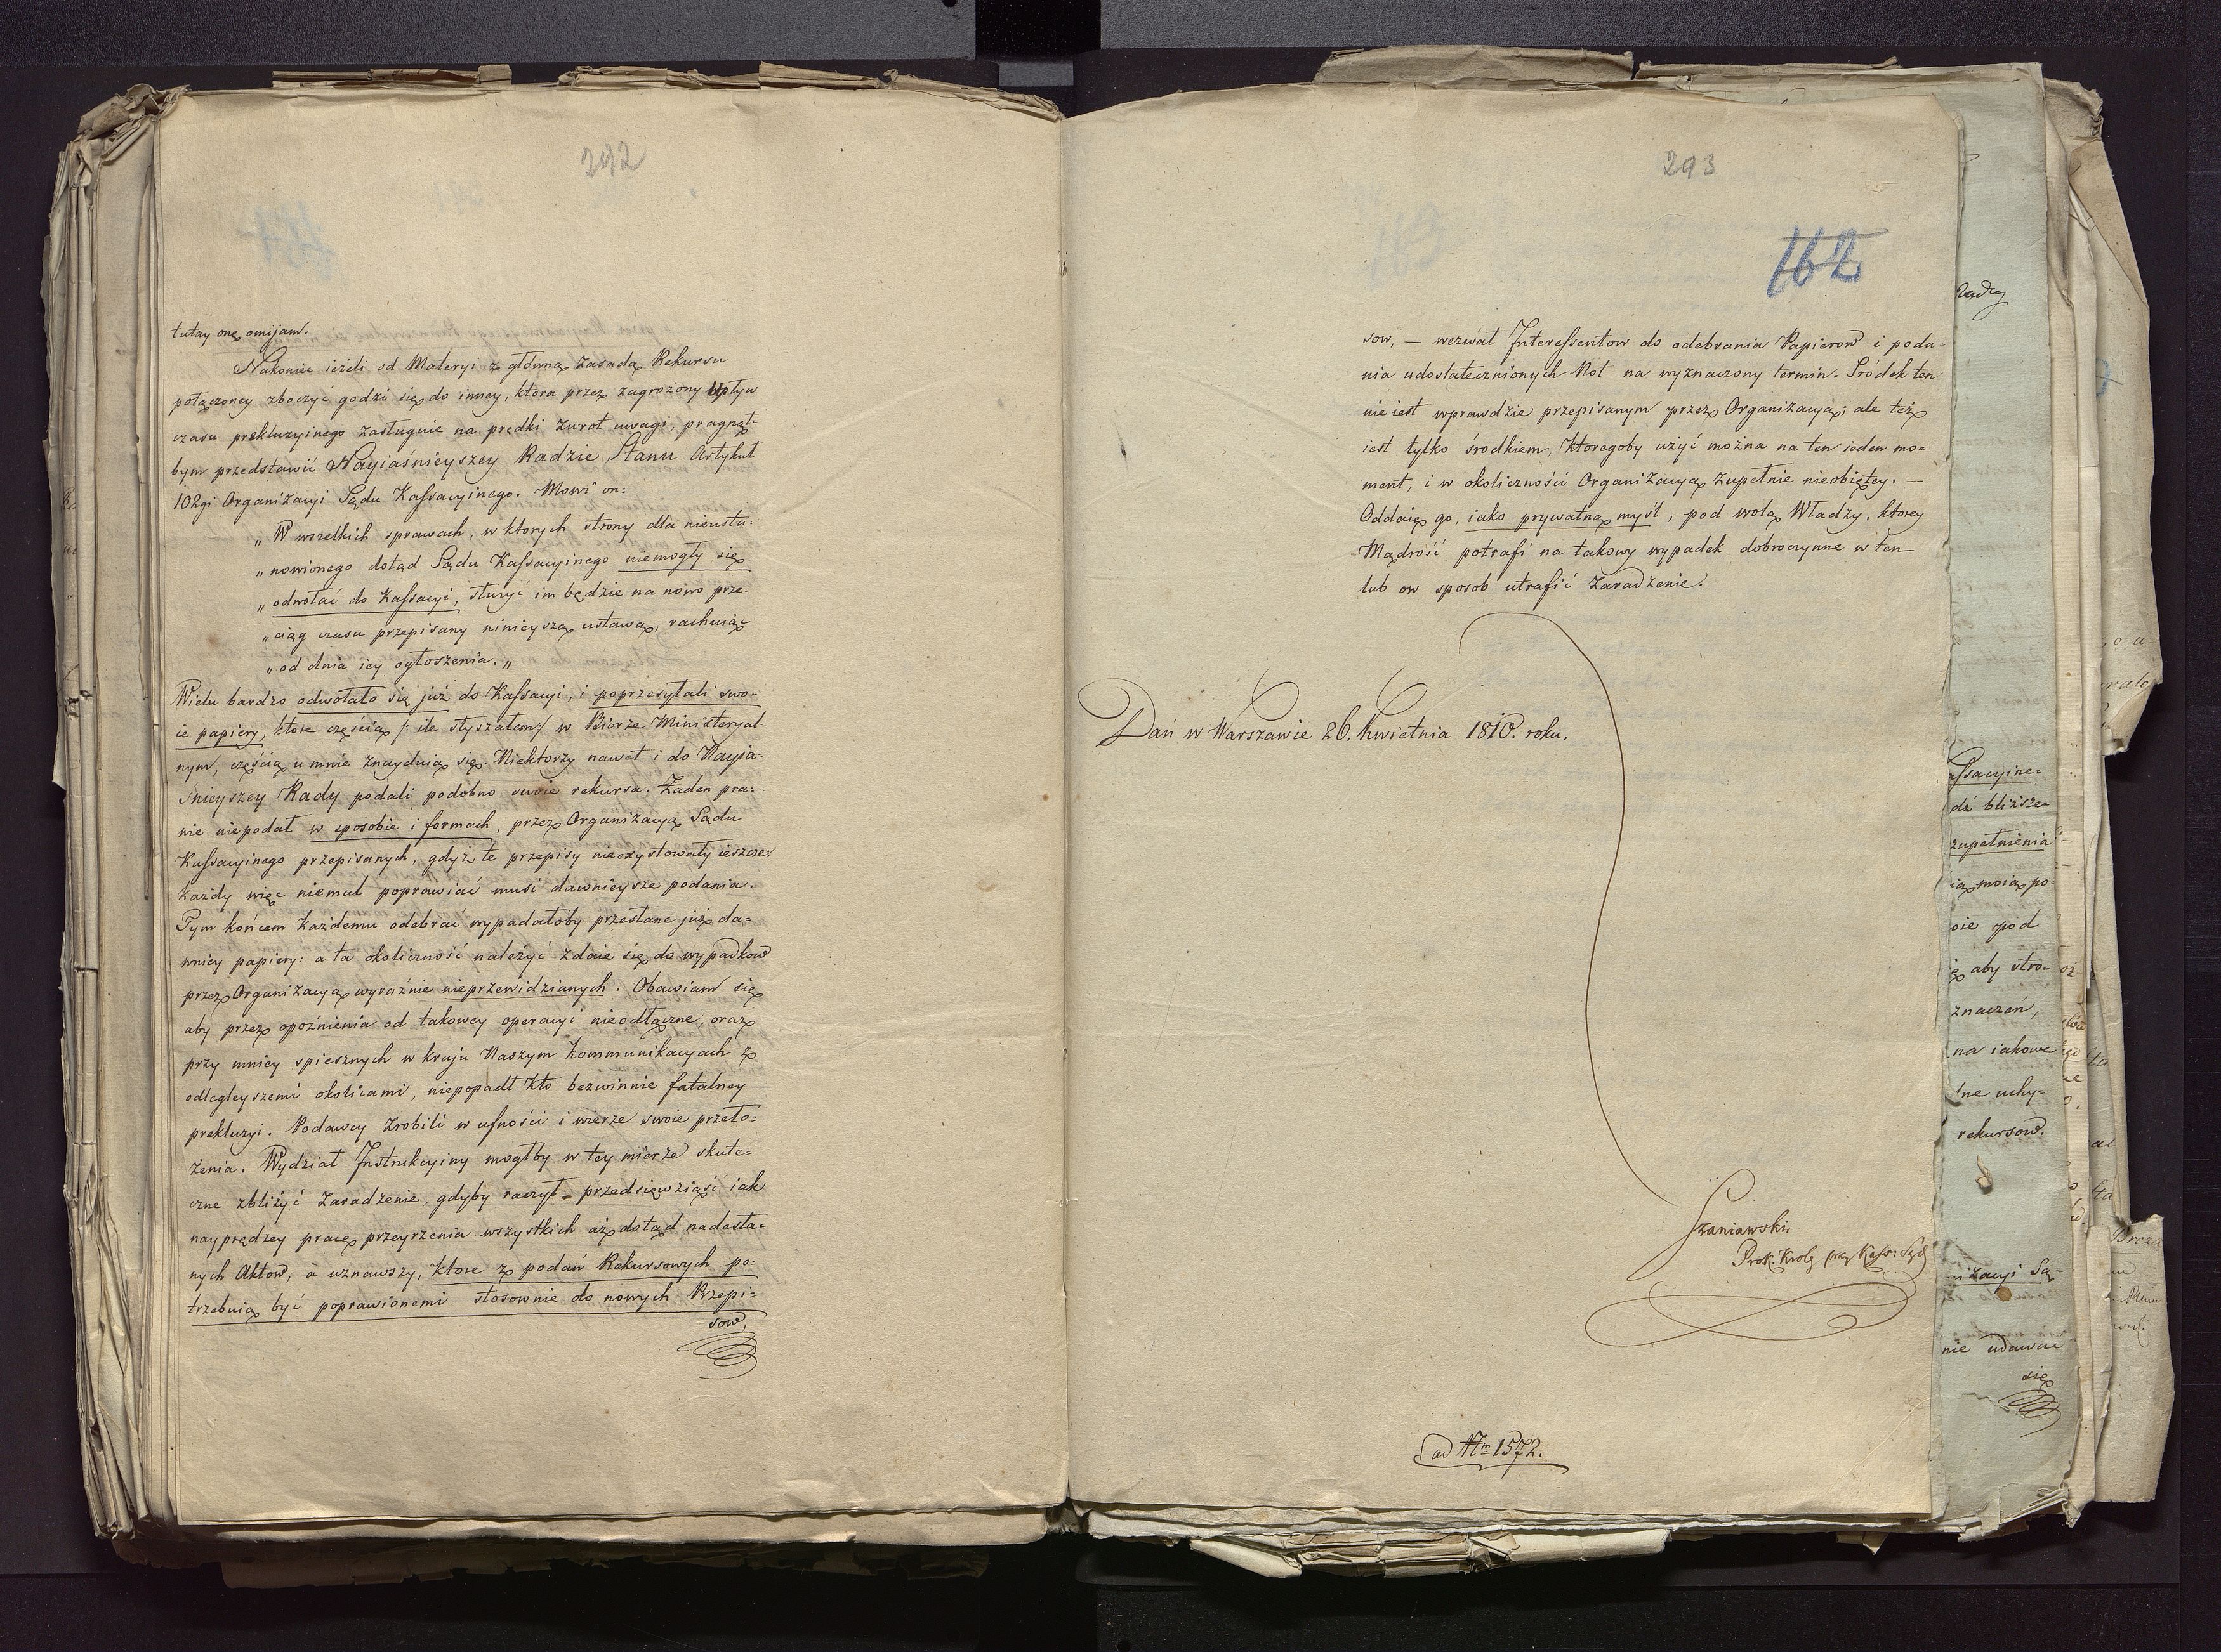 292
tutay onę omijam.
Nakoniec ieżeli od Materyi z główną zasadą Rekursu
połączoney zboczyć godzi się do inney, ktora przez zagrożony upływ
czasu prekluzyinego zasługuie na prędki zwrot uwagi, pragnął-
bym przedstawić Nayiaśnieyszey Radzie Stanu Artykuł
102gi Organizacyi Sądu Kassacyinego. Mowi on:
„W wszelkich sprawach, w ktorych strony dla nieusta-
„nowionego dotąd Sądu Kassacyinego niemogły się
„odwołać do Kassacyi, służyć im będzie na nowo prze-
„ciąg czasu przepisany ninieyszą ustawą, rachuiąc
„od dnia iey ogłoszenia.„
Wielu bardzo odwołało się już do Kassacyi, i poprzesyłali swo-
ie papiery, ktore częścią /: ile słyszałem :/ w Biorze Ministeryal-
nym, częścią u mnie znayduią się. Niektorzy nawet i do Nayia-
śnieyszey Rady podali podobno swoie rekursa. Żaden pra-
wie niepodał w sposobie i formach, przez Organizacyą Sądu
Kassacyinego przepisanych, gdyż te przepisy nieexystowały ieszcze:
Każdy więc niemal poprawiać musi dawnieysze podania.
Tym końcem każdemu odebrać wypadałoby przesłane już da-
wniey papiery: a ta okoliczność należyć zdaie się do wypadkow
przez Organizacyą wyraźnie nieprzewidzianych. Obawiam się
aby przez opoźnienia od takowey operacyi nieodłączne, oraz
przy mniey spiesznych w kraju Naszym kommunikacyach z
odlegleyszemi okolicami, niepopadł kto bezwinnie fatalney
prekluzyi. Podawcy zrobili w ufności i wierze swoie przeło-
żenia. Wydział Instrukcyiny mogłby w tey mierze skute-
czne zbliżyć zaradzenie, gdyby raczył - przedsięwziąść iak
nayprędzey pracę przeyrzenia wszystkich aż dotąd nadesła-
nych Aktow, a uznawszy, ktore z podań Rekursowych po-
trzebuią być poprawionemi stosownie do nowych Przepi-
sow,
293
162
sow, — wezwał Interessentow do odebrania Papierow i poda-
nia udostatecznionych Not na wyznaczony termin. Środek ten
nie iest wprawdzie przepisanym przez Organizacyą; ale też
iest tylko środkiem, ktoregoby użyć można na ten ieden mo-
ment, i w okoliczności Organizacyą zupełnie nieobiętey. —
Oddaię go, iako prywatną myśl, pod wolą Władzy, ktorey
Mądrość potrafi na takowy wypadek dobroczynne w ten
lub ow sposob utrafić zaradzenie.
Dań w Warszawie 26. Kwietnia 1810. roku.
Szaniawski
Prok. Krolę przy Kass: Sądz
ad Num 1572.
Władzy
assacyine-
dź bliższe-
zupełnienia
ią moią po-
oie pod
ę aby stro-
znaczeń,
na iakowe
ne uchy-
rekursow.
nizacyi Są-
nie udawać
się